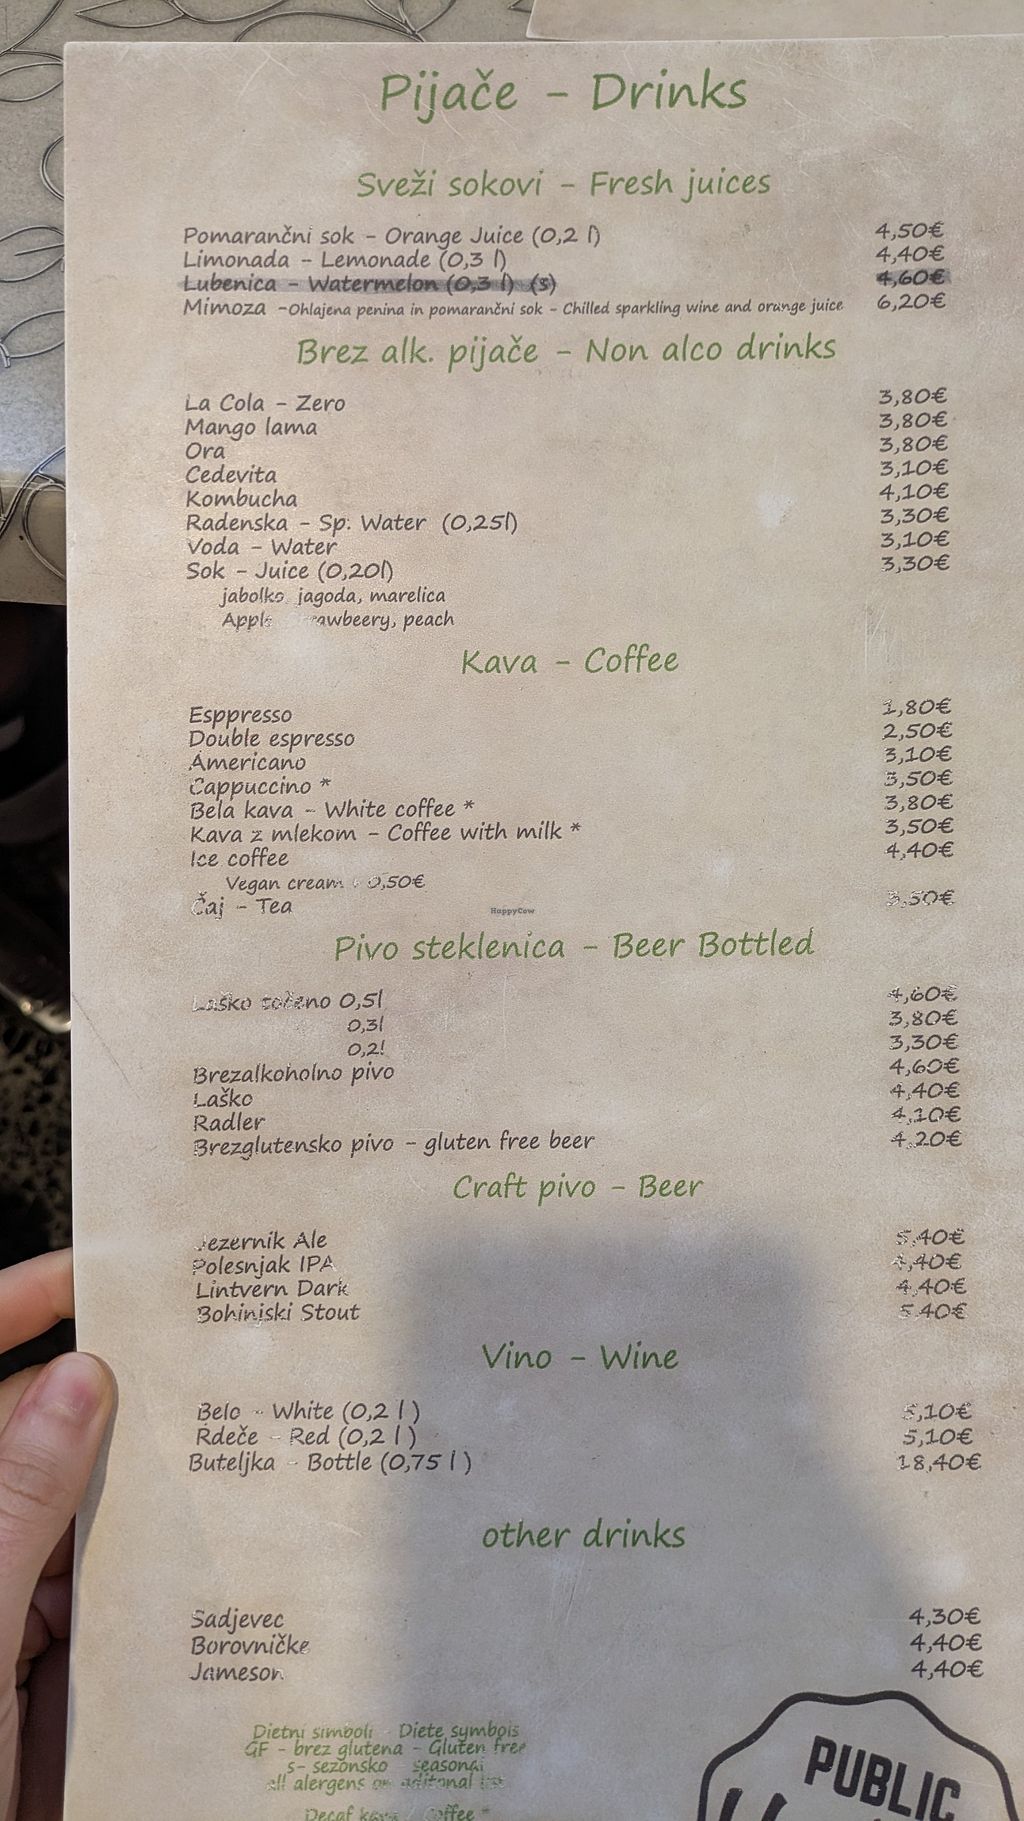 Pijače - Drinks
Sveži sokovi - Fresh juices
Pomarančni sok - Orange Juice (0,2 l) 4,50€
Limonada - Lemonade (0,3 l) 4,40€
Lubenica - Watermelon (0,3 l) (s) 4,60€
Mimoza -Ohlajena penina in pomarančni sok - Chilled sparkling wine and orange juice 6,20€
Brez alk. pijače - Non alco drinks
La Cola - Zero 3,80€
Mango lama 3,80€
Ora 3,80€
Cedevita 3,10€
Kombucha 4,10€
Radenska - Sp. Water (0,25l) 3,30€
Voda - Water 3,10€
Sok - Juice (0,20l) 3,30€
jabolko, jagoda, marelica
Apple, peach
Kava - Coffee
Esppresso 1,80€
Double espresso 2,50€
Americano 3,10€
Cappuccino * 3,50€
Bela kava - White coffee * 3,80€
Kava z mlekom - Coffee with milk * 3,50€
Ice coffee 4,40€
Vegan cream 0,50€
Čaj - Tea 3,50€
HappyCow
Pivo steklenica - Beer Bottled
Laško točeno 0,5l 4,60€
0,3l 3,80€
0,2l 3,30€
Brezalkoholno pivo 4,60€
Laško 4,40€
Radler 4,10€
Brezglutensko pivo - gluten free beer 4,20€
Craft pivo - Beer
Jezernik Ale 5,40€
Polesnjak IPA 4,40€
Lintvern Dark 4,40€
Bohinjski Stout 5,40€
Vino - Wine
Belo - White (0,2 l ) 5,10€
Rdeče - Red (0,2 l ) 5,10€
Buteljka - Bottle (0,75 l ) 18,40€
other drinks
Sadjevec 4,30€
Borovničke 4,40€
Jameson 4,40€
Dietni simboli - Diete symbols
GF - brez glutena - Gluten free
s- sezonsko - seasonal
all alergens on aditonal list
Decaf kava Coffee *
PUBLIC